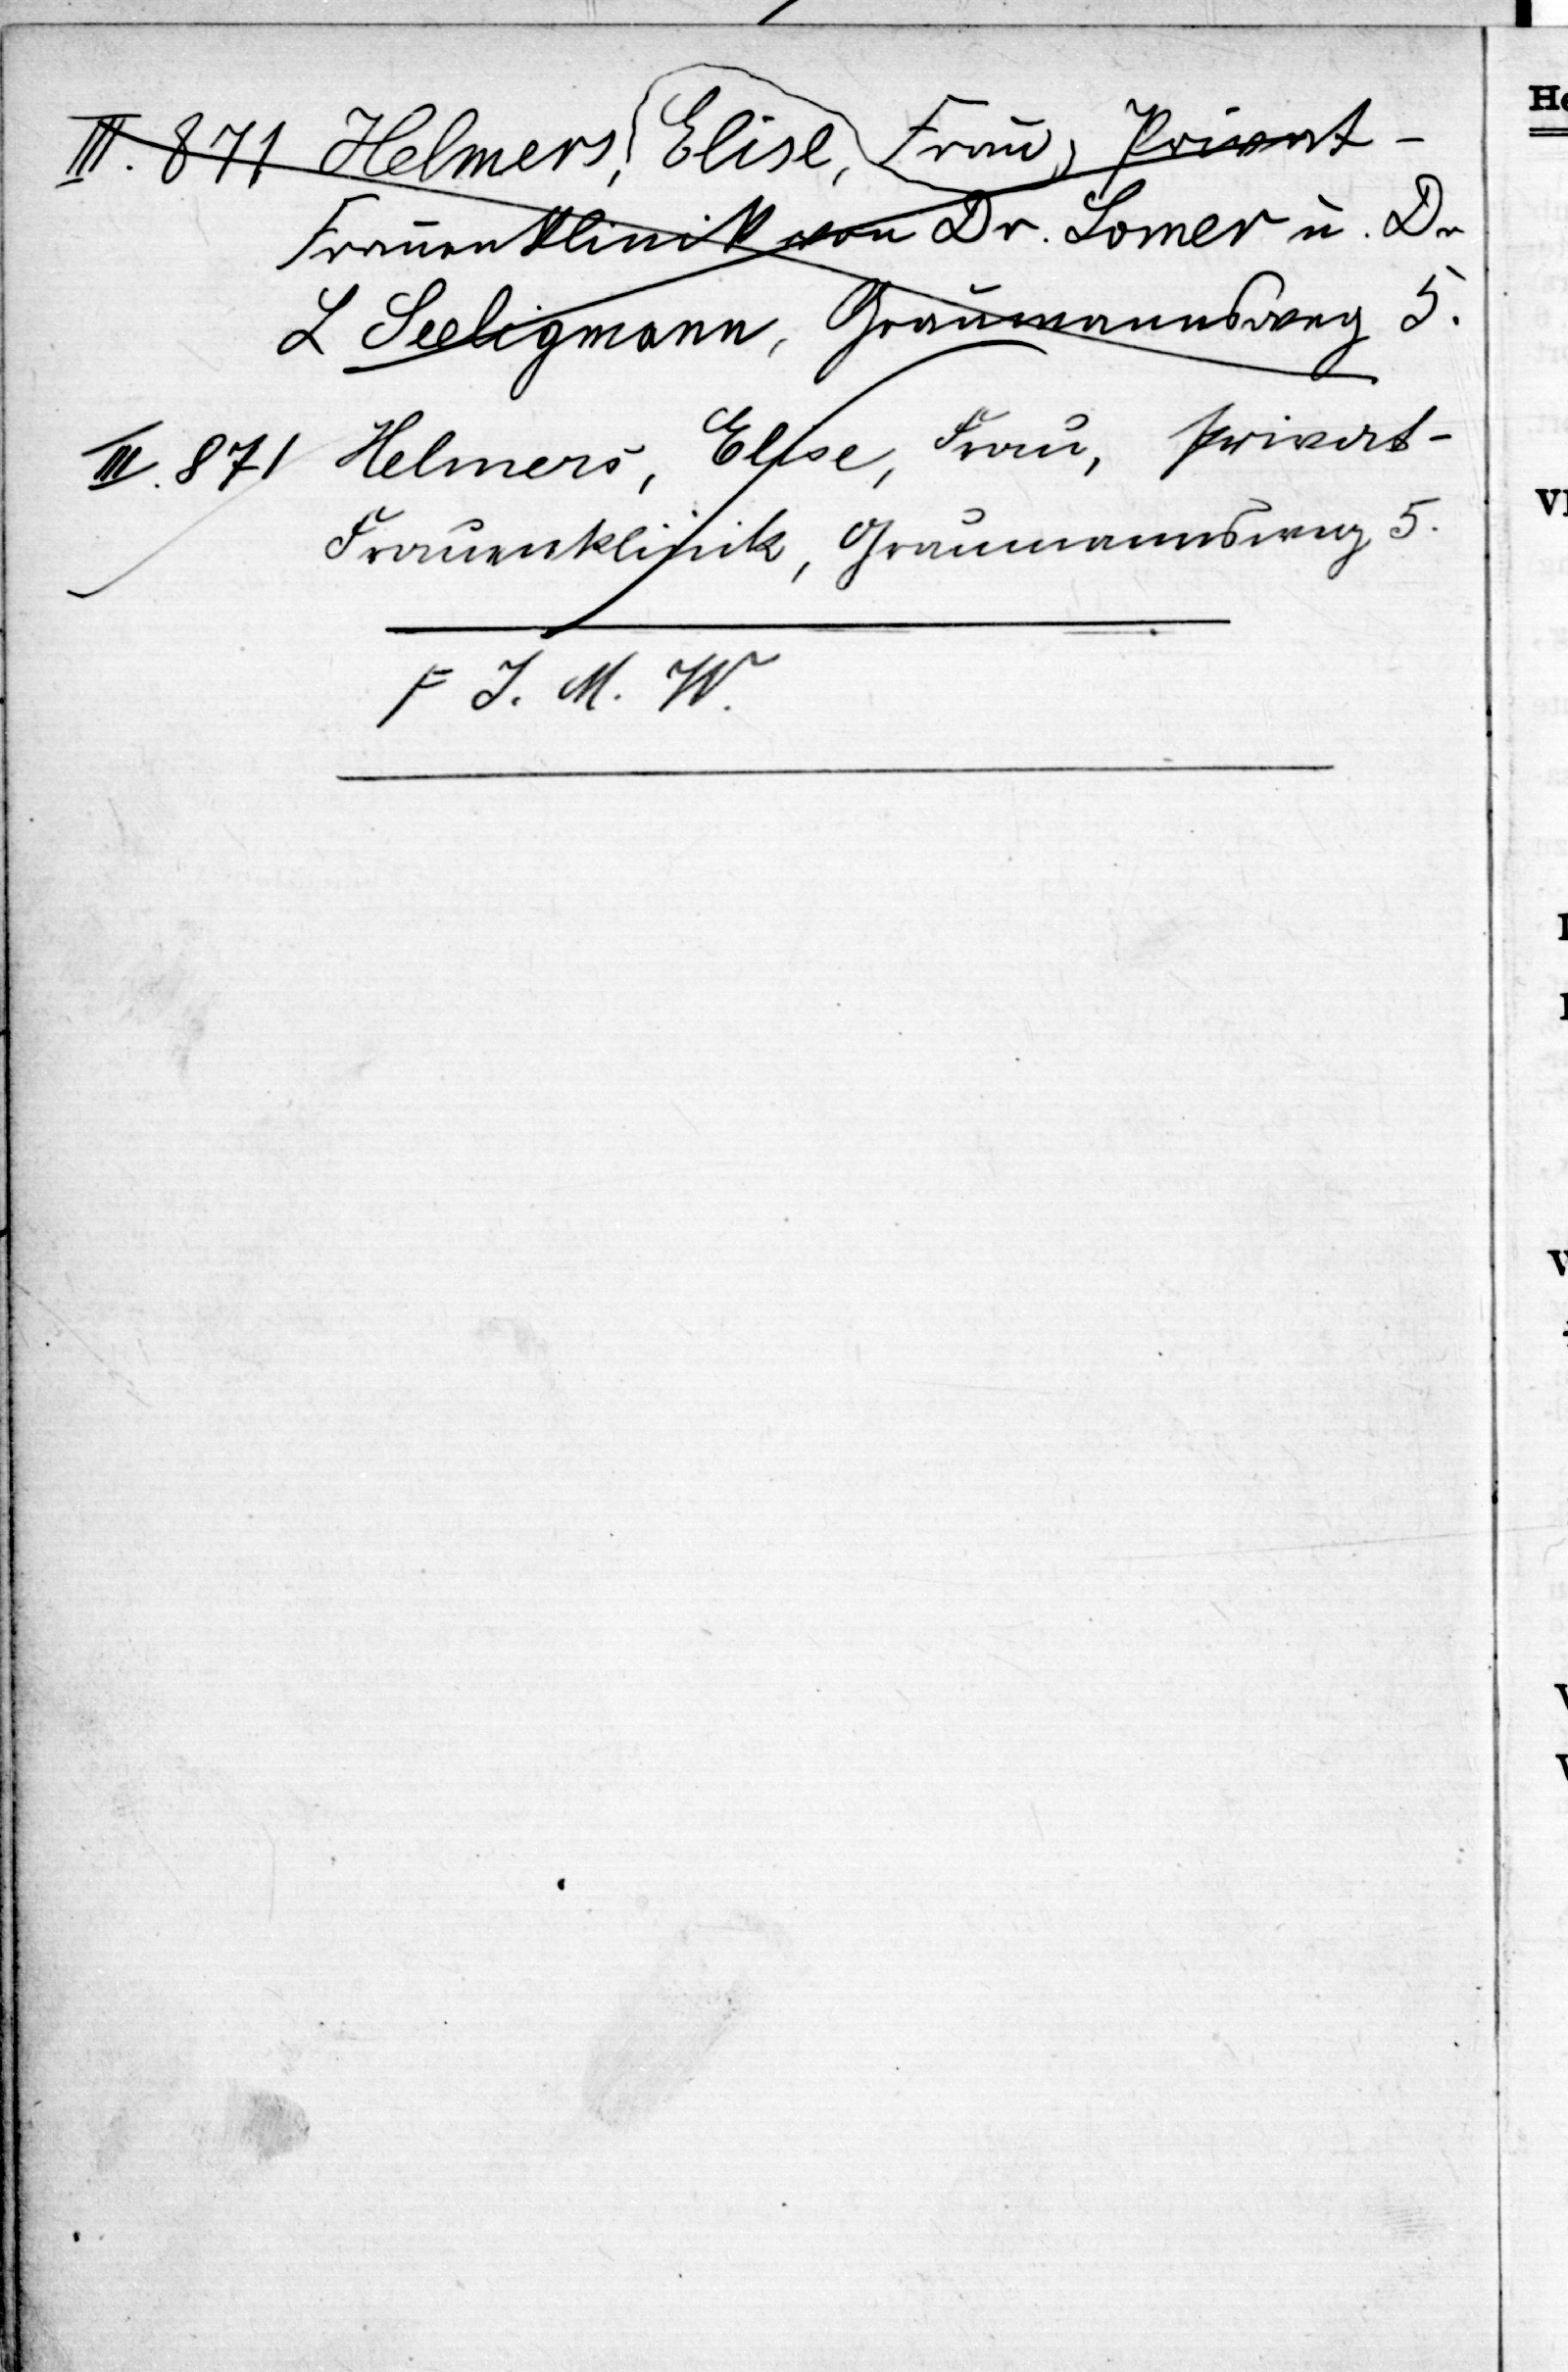 III. 871 Helmers, Elise, Frau, Privat-
Frauenklinik von Dr. Lomer u. Dr
L Seeligmann, Graumannsweg 5.
III. 871 Helmers, Elise, Frau, Privat-
Frauenklinik, Graumannsweg 5.
F J. M. W.
He